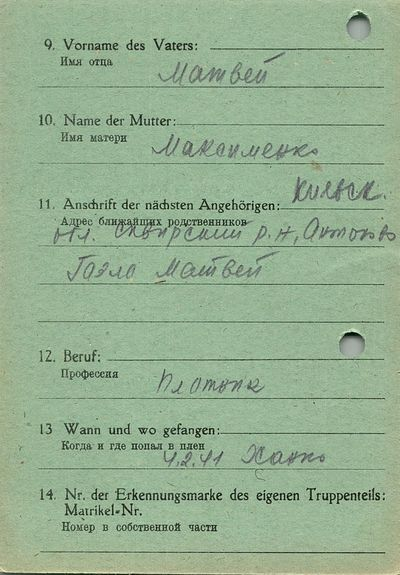 9. Vorname des Vaters:
Имя отца
Матвей
10. Name der Mutter:
Имя матери
Максименко
11. Anschrift der nächsten Angehörigen: Киевск.
Адрес ближайших родственников
обл. Сквирский р.н,
Матвей
12. Beruf:
Профессия
13 Wann und wo gefangen:
Когда и где попал в плен
4.2.41 Ханко
14. Nr. der Erkennungsmarke des eigenen Truppenteils:
Matrikel-Nr.
Номер в собственной части